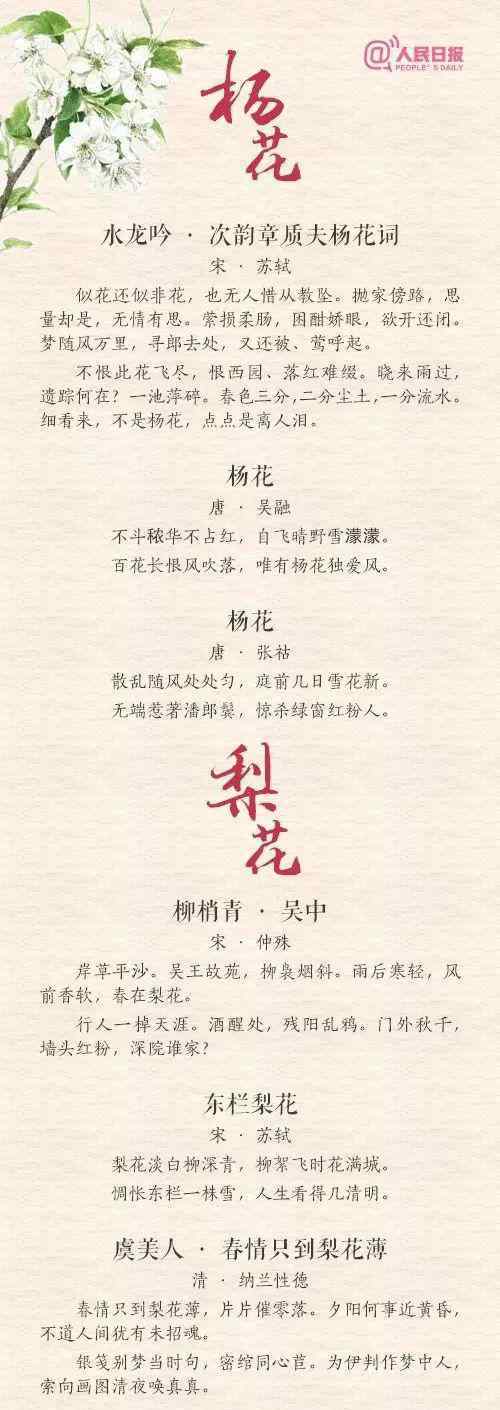 @人民日报
PEOPLE'S DAILY
杨花
水龙吟 · 次韵章质夫杨花词
宋 · 苏轼
似花还似非花，也无人惜从教坠。抛家傍路，思
量却是，无情有思。萦损柔肠，困酣娇眼，欲开还闭。
梦随风万里，寻郎去处，又还被、莺呼起。
不恨此花飞尽，恨西园、落红难缀。晓来雨过，
遗踪何在？一池萍碎。春色三分，二分尘土，一分流水。
细看来，不是杨花，点点是离人泪。
杨花
唐 · 吴融
不斗秾华不占红，自飞晴野雪濛濛。
百花长恨风吹落，唯有杨花独爱风。
杨花
唐 · 张祜
散乱随风处处匀，庭前几日雪花新。
无端惹著潘郎鬓，惊杀绿窗红粉人。
梨花
柳梢青 · 吴中
宋 · 仲殊
岸草平沙。吴王故苑，柳袅烟斜。雨后寒轻，风
前香软，春在梨花。
行人一棹天涯。酒醒处，残阳乱鸦。门外秋千，
墙头红粉，深院谁家？
东栏梨花
宋 · 苏轼
梨花淡白柳深青，柳絮飞时花满城。
惆怅东栏一株雪，人生看得几清明。
虞美人 · 春情只到梨花薄
清 · 纳兰性德
春情只到梨花薄，片片催零落。夕阳何事近黄昏，
不道人间犹有未招魂。
银笺别梦当时句，密绾同心苣。为伊判作梦中人，
索向画图清夜唤真真。